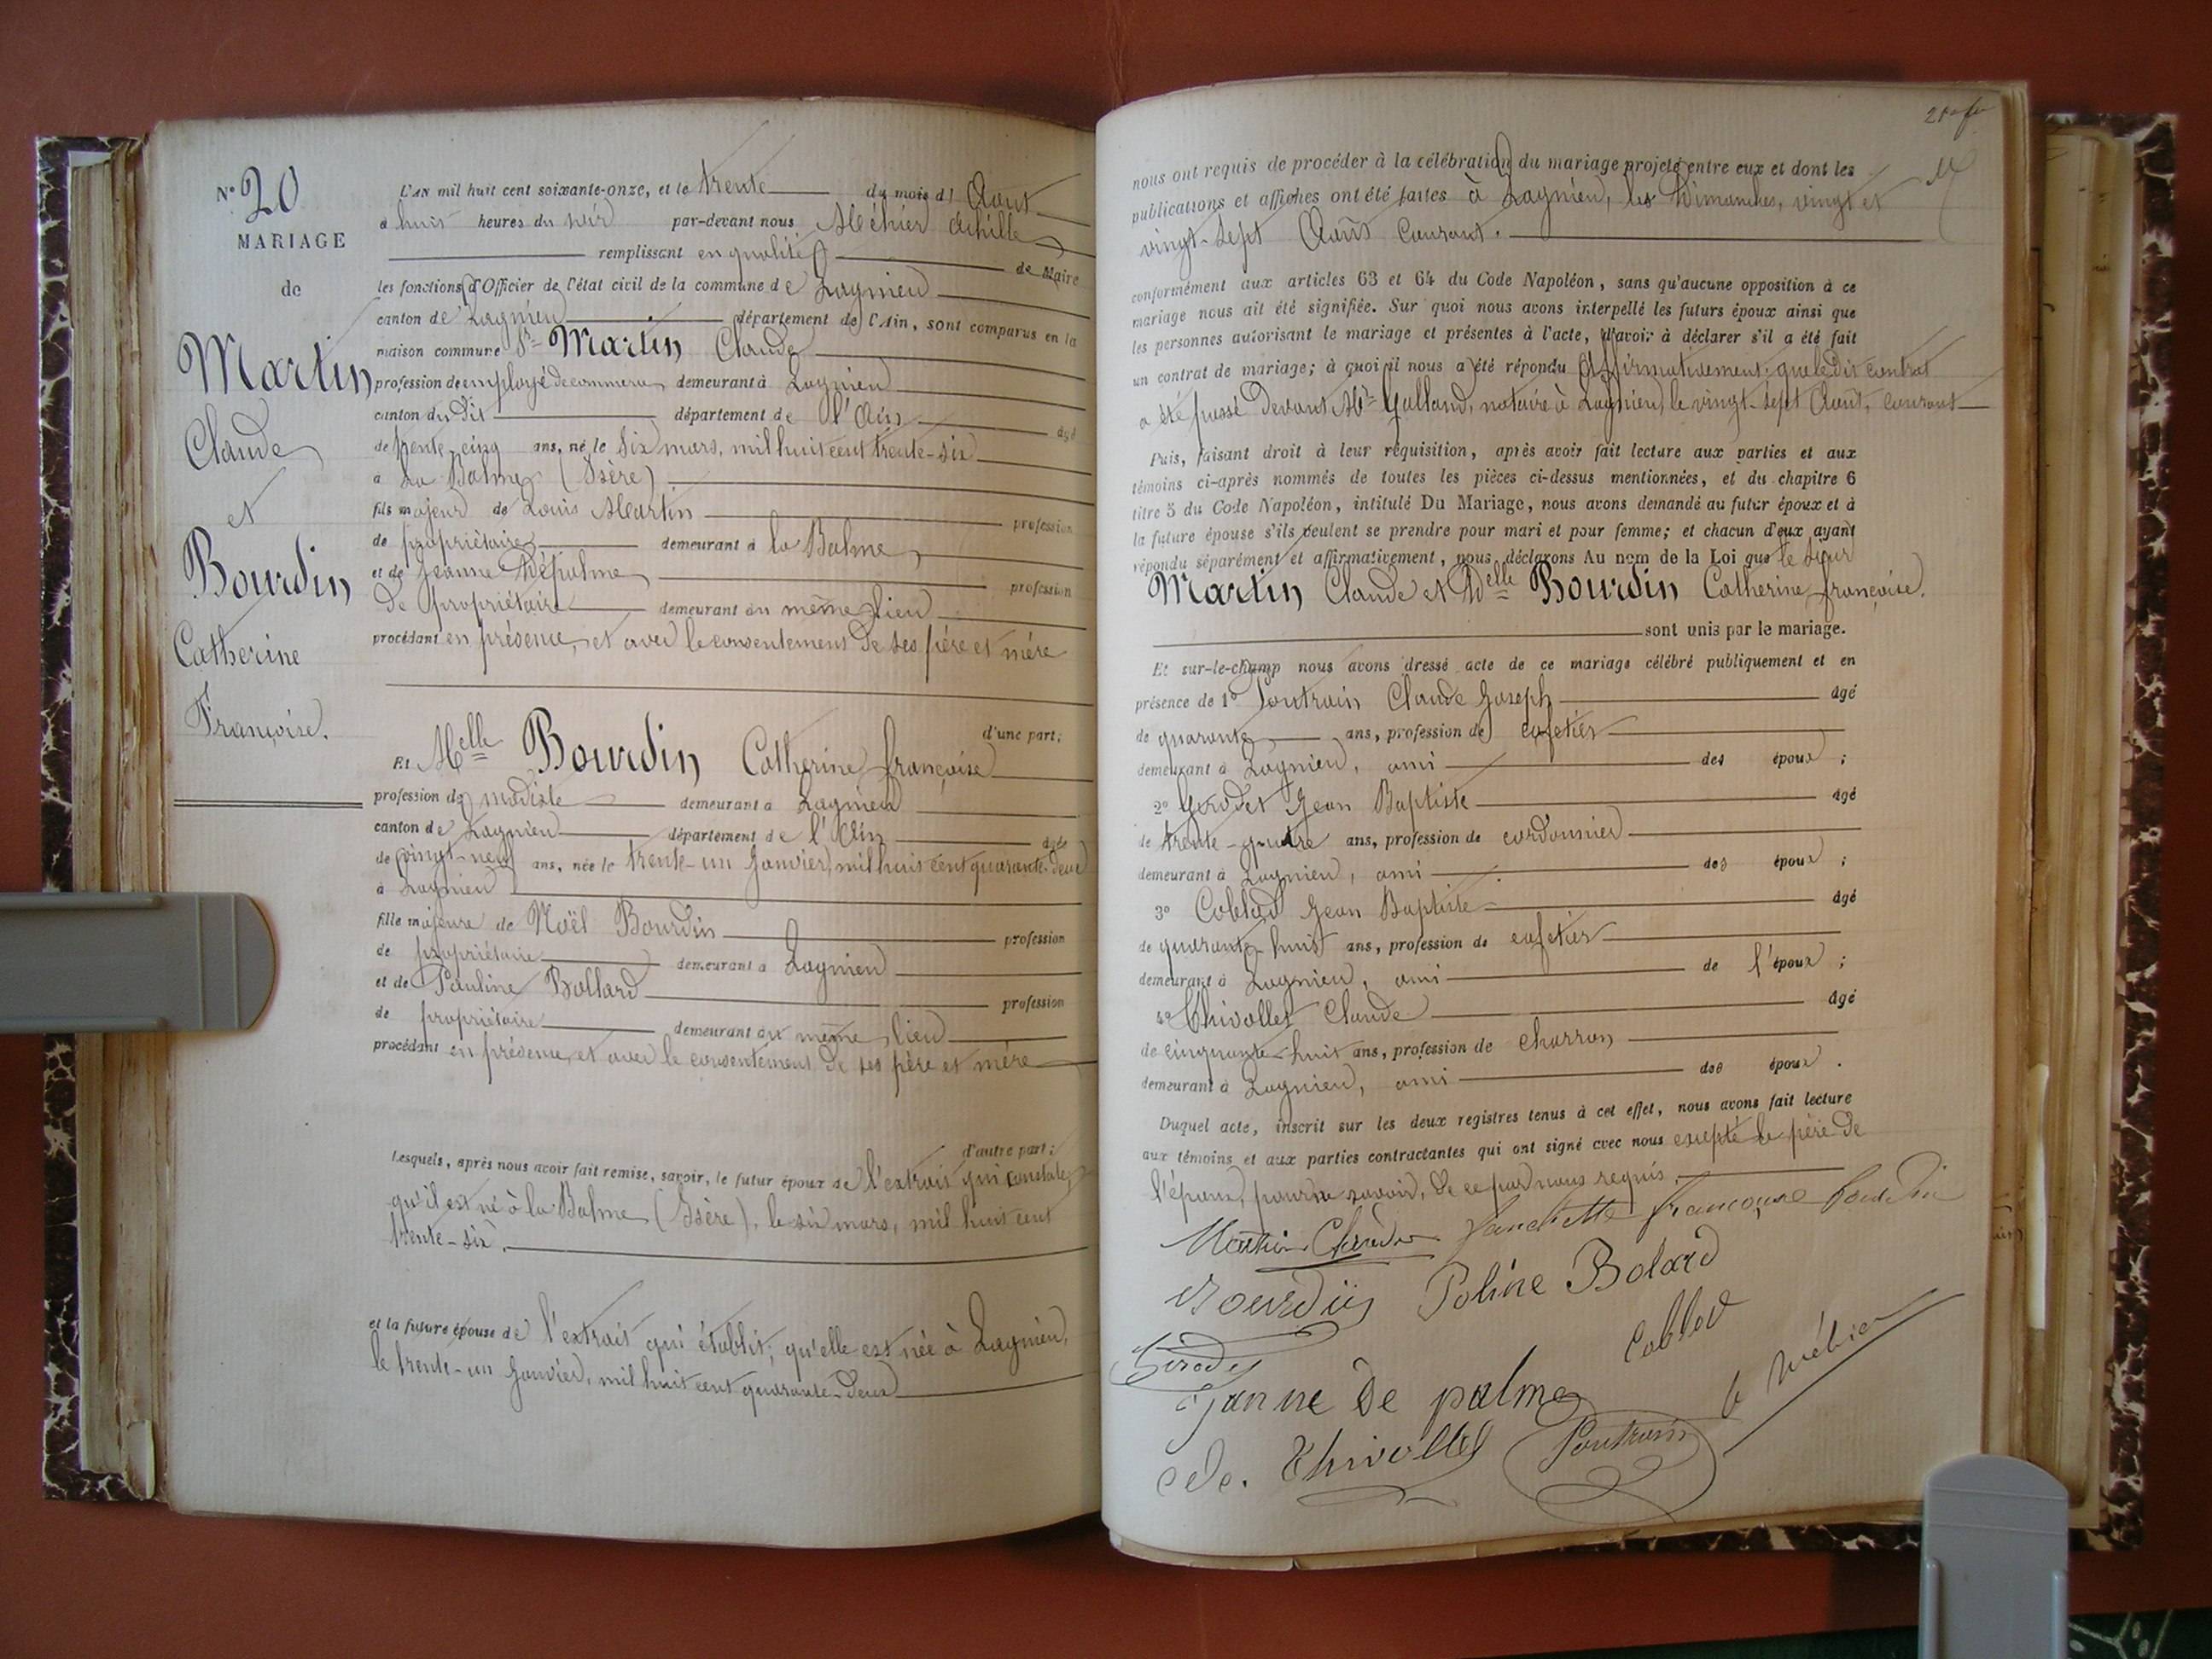 N° 20
MARIAGE
de
Martin
Claude
et
Bourdin
Catherine
Françoise.
L'AN mil huit cent soixante-onze, et le trente du mois d' Aout
à huit heures du soir par-devant nous Méhier Achille
remplissant en qualité de Maire
les fonctions d'Officier de l'état civil de la commune de Lagnieu
canton de Lagnieu département de l'Ain, sont comparus en la
maison commune Sr Martin Claude
profession de employé de commerce demeurant à Lagnieu
canton du dit département de l'Ain âgé
de trente-cinq ans, né le six mars, mil huit cent trente-six
à La Balme (Isère)
fils majeur de Louis Martin profession
de propriétaire demeurant à la Balme,
et de Jeanne Dépalme profession
de propriétaire demeurant au même lieu
procédant en présence, et avec le consentement de ses père et mère
d'une part;
Et Melle Bourdin Catherine françoise
profession de modiste demeurant à Lagnieu
canton de Lagnieu département de l'Ain âgée
de vingt-neuf ans, née le trente-un Janvier, mil huit cent quarante-deux
à Lagnieu
fille majeure de Noël Bourdin profession
de propriétaire demeurant à Lagnieu
et de Pauline Bollard profession
de propriétaire demeurant au même lieu
procédant en présence, et avec le consentement de ses père et mère
d'autre part;
Lesquels, après nous avoir fait remise, savoir, le futur époux de l'extrait qui constate,
qu'il est né à la Balme (Isère), le six mars, mil huit cent
trente-six.
et la future épouse de l'extrait qui établit, qu'elle est née à Lagnieu,
le trente-un Janvier, mil huit cent quarante-deux
nous ont requis de procéder à la célébration du mariage projeté entre eux et dont les
publications et affiches ont été faites à Lagnieu, les Dimanches, vingt et
vingt-sept Août courant.
conformément aux articles 63 et 64 du Code Napoléon, sans qu'aucune opposition à ce
mariage nous ait été signifiée. Sur quoi nous avons interpellé les futurs époux ainsi que
les personnes autorisant le mariage et présentes à l'acte, d'avoir à déclarer s'il a été fait
un contrat de mariage; à quoi il nous a été répondu Affirmativement; que le dit contrat
a été passé devant Me Galland, notaire à Lagnieu, le vingt-sept Août, courant
Puis, faisant droit à leur réquisition, après avoir fait lecture aux parties et aux
témoins ci-après nommés de toutes les pièces ci-dessus mentionnées, et du chapitre 6
titre 5 du Code Napoléon, intitulé Du Mariage, nous avons demandé au futur époux et à
la future épouse s'ils veulent se prendre pour mari et pour femme; et chacun d'eux ayant
répondu séparément et affirmativement, nous déclarons Au nom de la Loi que le sieur
Martin Claude et Delle Bourdin Catherine françoise.
sont unis par le mariage.
Et sur-le-champ nous avons dressé acte de ce mariage célébré publiquement et en
présence de 1° Poutrain Claude Joseph âgé
de quarante ans, profession de cafetier
demeurant à Lagnieu, ami des époux;
2° Girodet Jean Baptiste âgé
de trente-quatre ans, profession de cordonnier
demeurant à Lagnieu, ami des époux;
3° Coblod Jean Baptiste âgé
de quarante-huit ans, profession de cafetier
demeurant à Lagnieu, ami de l'époux;
4° Thivollet Claude âgé
de cinquante-huit ans, profession de charron
demeurant à Lagnieu, ami des époux.
Duquel acte, inscrit sur les deux registres tenus à cet effet, nous avons fait lecture
aux témoins et aux parties contractantes qui ont signé avec nous excepté le père de
l'époux, pour ne savoir, de ce par nous requis.
Martin Claude françoise Bourdin
Bourdin Poline Bolard
Girodet Coblod
Janne de palme A Méhier
Cde. Thivollet Poutrain